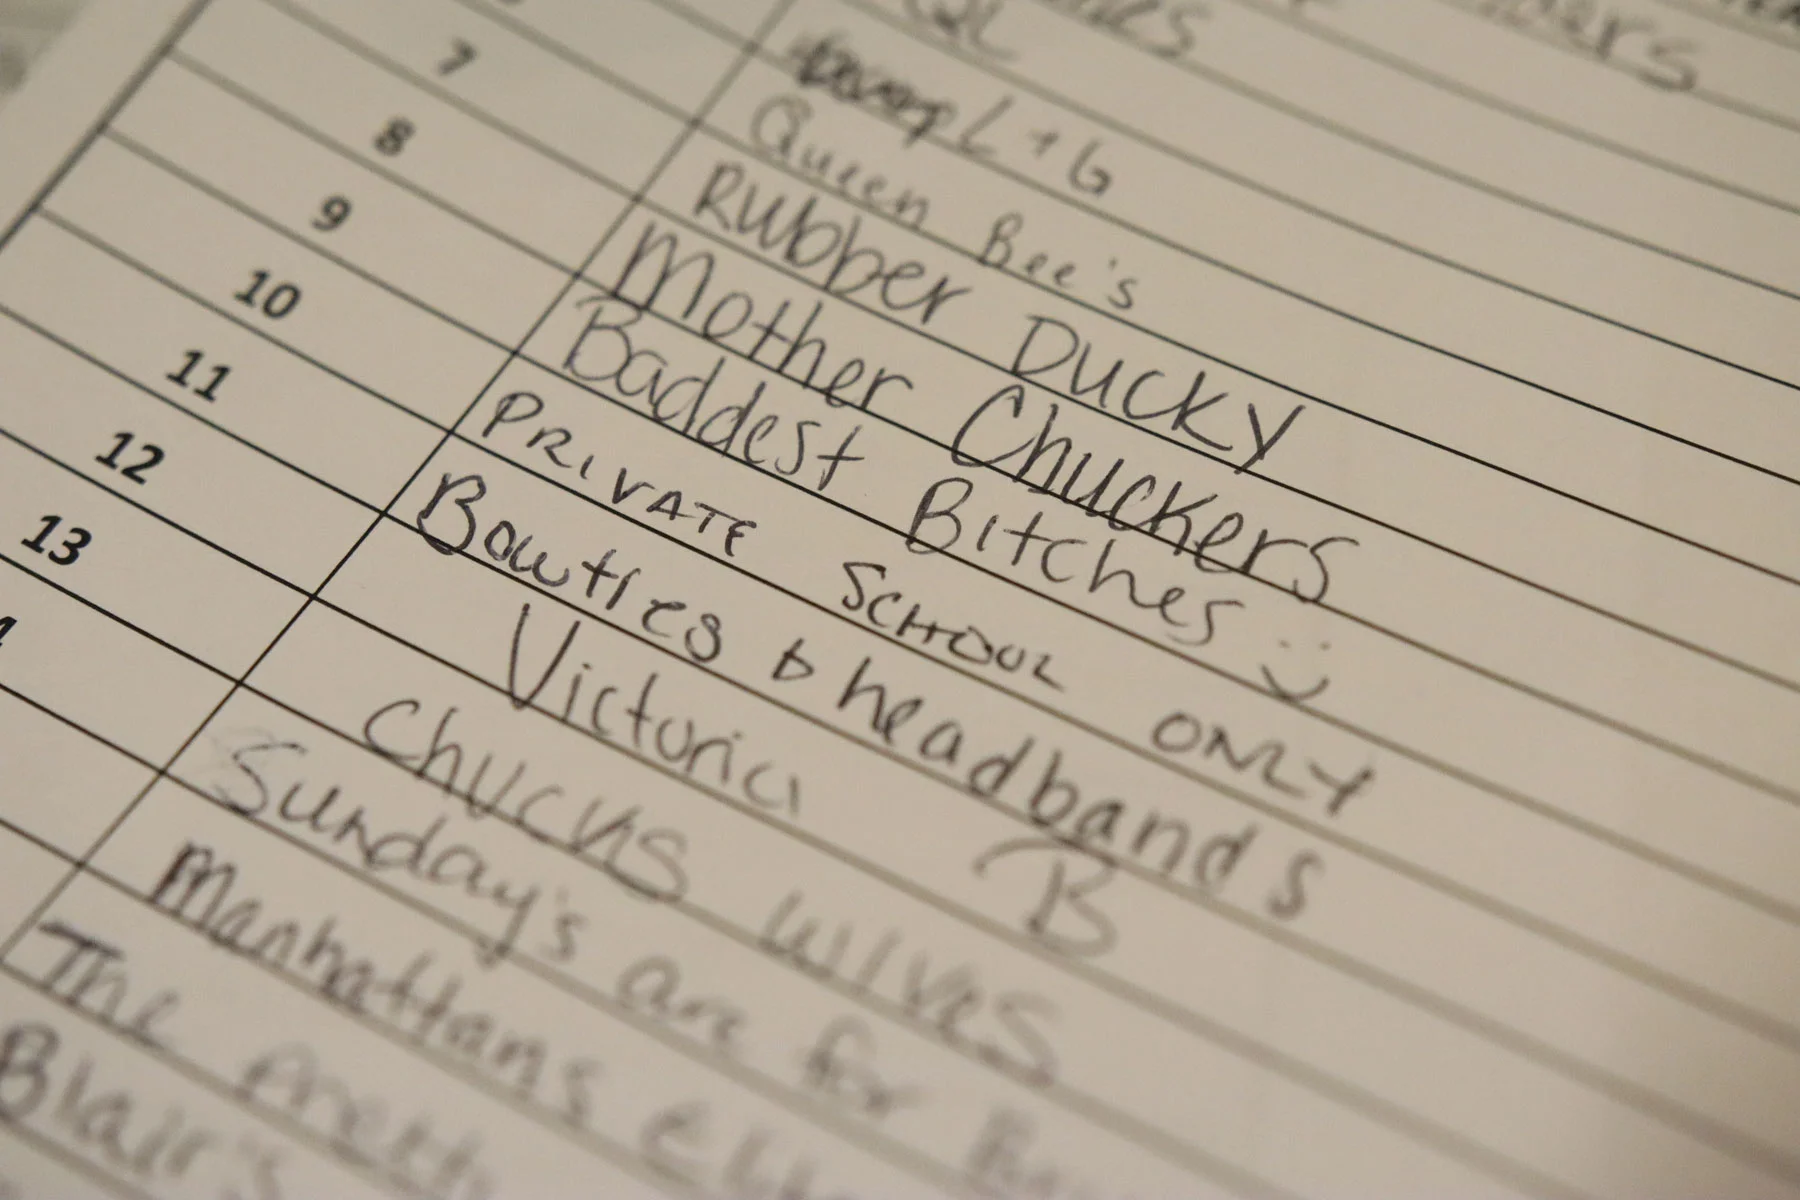 L + G
Queen Bee's
7 RUbber DUCKY
8 Mother Chuckers
9 Baddest Bitches :)
10 PRIVATE SCHOOL ONLY
11 Bowties & headbands
12 Victoria B
13 Chucks wives
4 Sunday's are for
Manhattans
The
Blair's